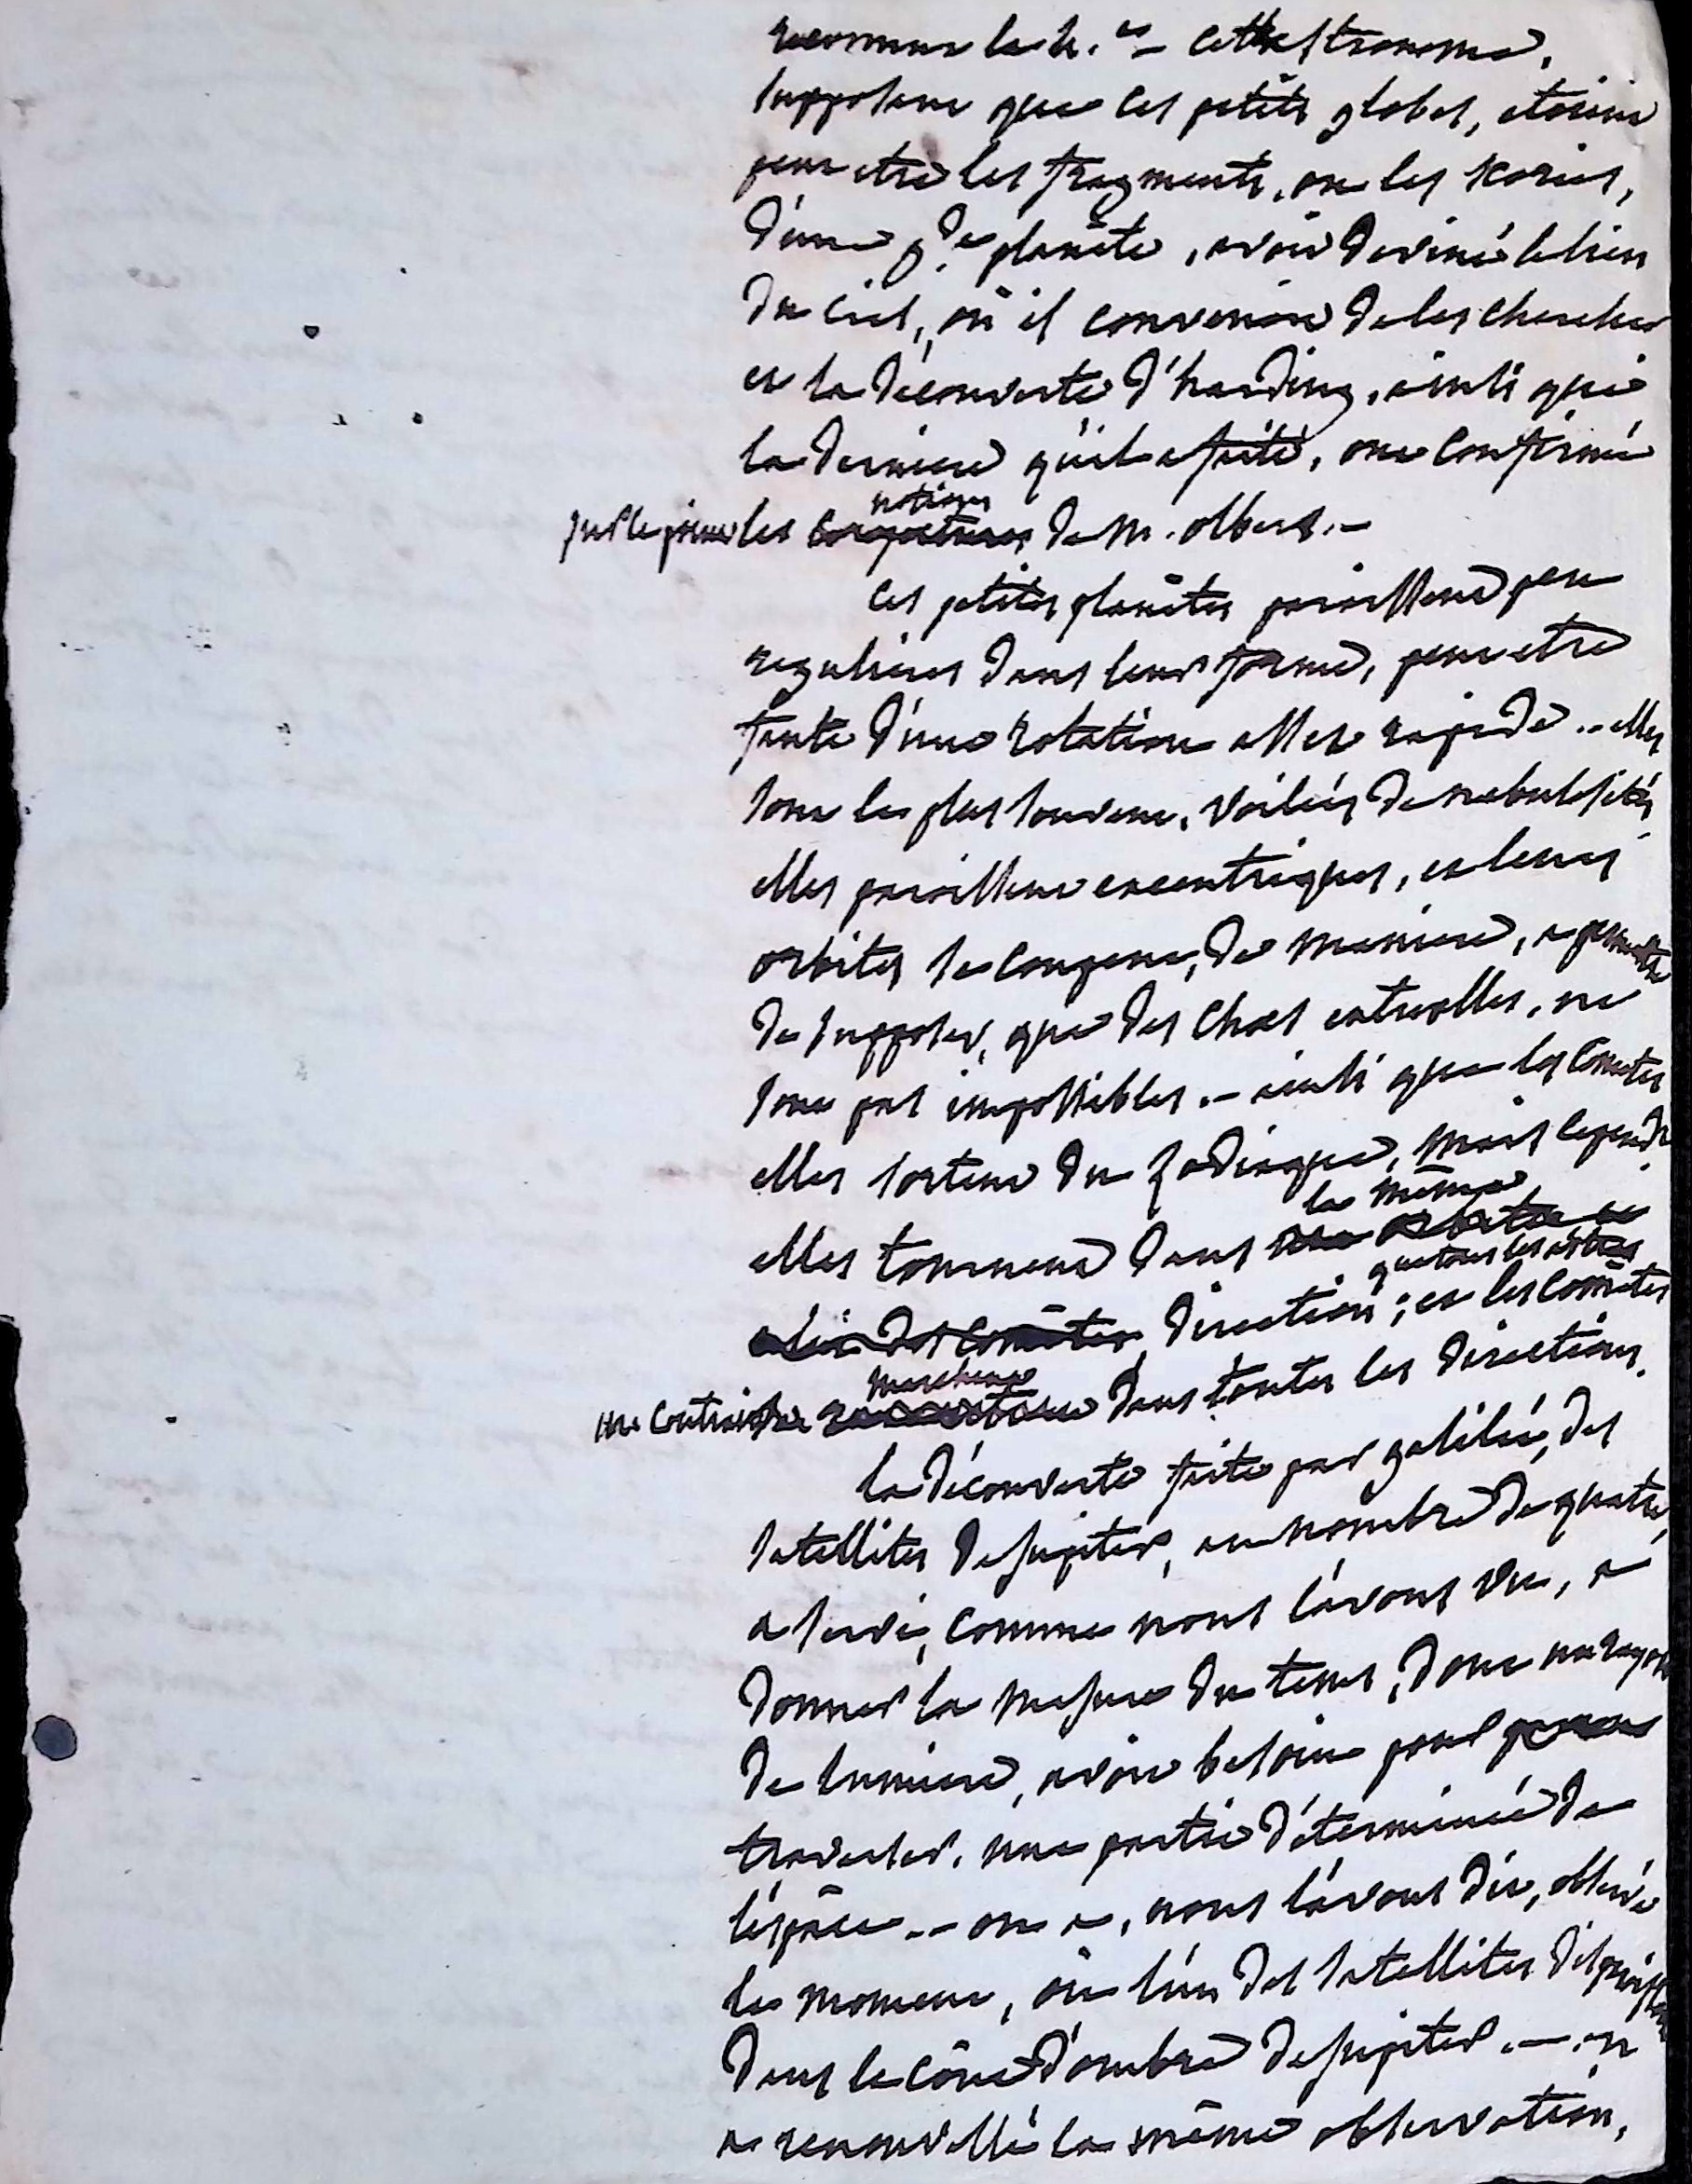 reconnu la h. cet astronome,
supposant que ces petits globes, etoient
peut etre les fragments, ou les scories,
d'une g.de planête, avoit deviné le lieu
du ciel, où il convenoit de les chercher
et la découverte d'harding, ainsi que
la derniere qu'il a faite, ont confirmé
sur ce point les conjectures notions de M. olbers. –
ces petites planêtes paroissent peu
regulieres dans leur forme, peut etre
faute d'une rotation assez rapide .. elles
sont le plus souvent, voilées de nebulosités
elles paroissent excentriques, et leurs
orbites se coupent, de maniere, a permettre
de supposer, que des chocs entr'elles, ne
sont pas impossibles. – ainsi que les cometes
elles sortent du zodiaque, mais cepend.t
elles tournent dans la même
que tous les astres
direction ; et les comêtes
au contraire marchent dans toutes les directions.
la découverte faite par galilée, des
satellites de jupiter, au nombre de quatre,
a servi, comme nous l'avons vu, a
donner la mesure du tems, dont un rayon
de lumiere, avoit besoin pour
traverser, une partie déterminée de
l'espâce .. on a, nous l'avons dit, observé
le moment, où l'un des satellites disparoissoit
dans le cône d'ombre de jupiter. – on
a renouvellé la même observation,